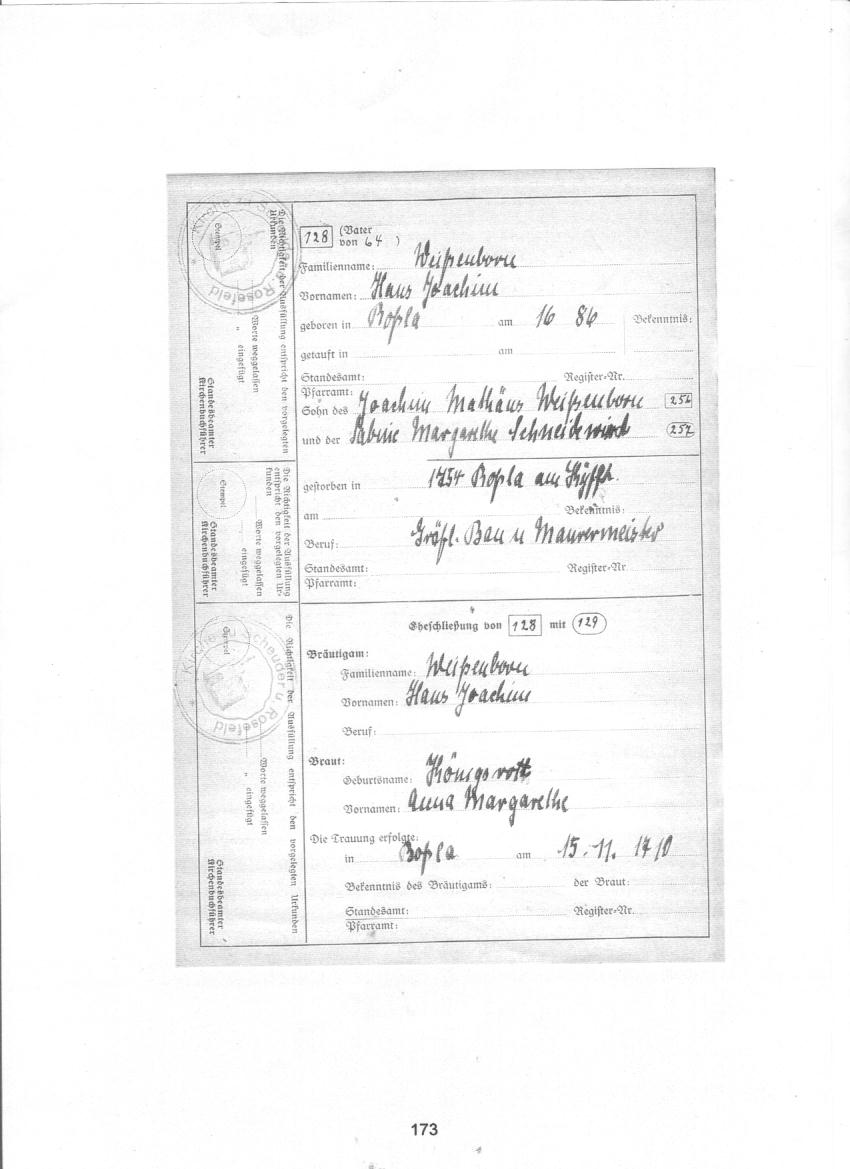 128 (Vater
von 64 )
Familienname: Weißenborn
Vornamen: Hans Joachim
geboren in Roßla am 16 86 Bekenntnis:
getauft in am
Standesamt: Register-Nr.
Pfarramt:
Sohn des Joachim Mathäus Weißenborn 256
und der Sabine Margarethe Schneidewind 257
gestorben in 1754 Roßla am Kyffh.
am Bekenntnis:
Beruf: Gräfl. Bau u Maurermeister
Standesamt: Register-Nr
Pfarramt:
Eheschließung von 128 mit 129
Bräutigam:
Familienname: Weißenborn
Vornamen: Hans Joachim
Beruf:
Braut:
Geburtsname: Königsrott
Vornamen: Anna Margarethe
Die Trauung erfolgte:
in Roßla am 15. 11. 1710
Bekenntnis des Bräutigams: der Braut:
Standesamt: Register-Nr.
Pfarramt:
Die Richtigkeit der Ausfüllung entspricht den vorgelegten
Urkunden
Stempel
Worte weggelassen
„ eingefügt
Standesbeamter
Kirchenbuchführer
Die Richtigkeit der Ausfüllung
entspricht den vorgelegten Ur-
kunden
Stempel
Worte weggelassen
eingefügt
Standesbeamter
Kirchenbuchführer
Die Richtigkeit der Ausfüllung entspricht den vorgelegten Urkunden
Stempel
Worte weggelassen
„ eingefügt
Standesbeamter
Kirchenbuchführer
Kirche zu Scheuder u. Rosefeld
173